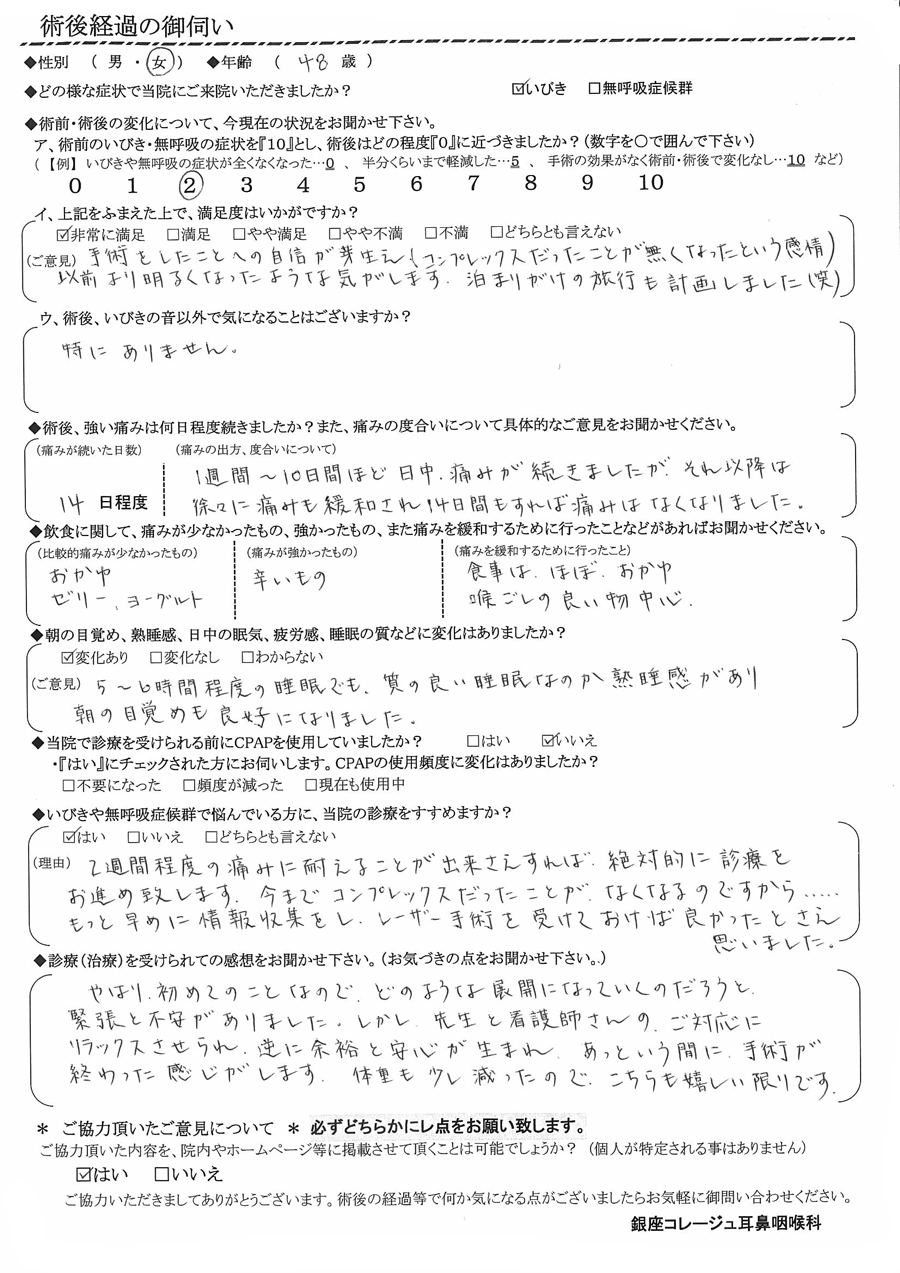 術後経過の御伺い
◆性別 （ 男 ・ 女 ） ◆年齢 （ 48 歳 ）
◆どの様な症状で当院にご来院いただきましたか？ ☑いびき □無呼吸症候群
◆術前・術後の変化について、今現在の状況をお聞かせ下さい。
ア、術前のいびき・無呼吸の症状を『10』とし、術後はどの程度『0』に近づきましたか？（数字を〇で囲んで下さい）
（ 【例】 いびきや無呼吸の症状が全くなくなった…0 、 半分くらいまで軽減した…5 、 手術の効果がなく術前・術後で変化なし…10 など）
0 1 2 3 4 5 6 7 8 9 10
イ、上記をふまえた上で、満足度はいかがですか？
☑非常に満足 □満足 □やや満足 □やや不満 □不満 □どちらとも言えない
（ご意見） 手術をしたことへの自信が芽生え（コンプレックスだったことが無くなったという感情）
以前より明るくなったような気がします。泊まりがけの旅行も計画しました（笑）
ウ、術後、いびきの音以外で気になることはございますか？
特にありません。
◆術後、強い痛みは何日程度続きましたか？また、痛みの度合いについて具体的なご意見をお聞かせください。
（痛みが続いた日数） （痛みの出方、度合いについて）
1週間～10日間ほど日中、痛みが続きましたが、それ以降は
14 日程度 徐々に痛みも緩和され、14日間もすれば痛みはなくなりました。
◆飲食に関して、痛みが少なかったもの、強かったもの、また痛みを緩和するために行ったことなどがあればお聞かせください。
（比較的痛みが少なかったもの） （痛みが強かったもの） （痛みを緩和するために行ったこと）
おかゆ 辛いもの 食事は、ほぼ、おかゆ
ゼリー、ヨーグルト 喉ごしの良い物中心。
◆朝の目覚め、熟睡感、日中の眠気、疲労感、睡眠の質などに変化はありましたか？
☑変化あり □変化なし □わからない
（ご意見） 5～6時間程度の睡眠でも、質の良い睡眠なのか熟睡感があり
朝の目覚めも良好になりました。
◆当院で診療を受けられる前にCPAPを使用していましたか？ □はい ☑いいえ
・『はい』にチェックされた方にお伺いします。CPAPの使用頻度に変化はありましたか？
□不要になった □頻度が減った □現在も使用中
◆いびきや無呼吸症候群で悩んでいる方に、当院の診療をすすめますか？
☑はい □いいえ □どちらとも言えない
（理由） 2週間程度の痛みに耐えることが出来さえすれば、絶対的に診療を
お進め致します。今までコンプレックスだったことが、なくなるのですから……
もっと早めに情報収集をし、レーザー手術を受けておけば良かったとさえ
思いました。
◆診療（治療）を受けられての感想をお聞かせ下さい。（お気づきの点をお聞かせ下さい。）
やはり、初めてのことなので、どのような展開になっていくのだろうと、
緊張と不安がありました。しかし、先生と看護師さんの、ご対応に
リラックスさせられ、逆に余裕と安心が生まれ、あっという間に、手術が
終わった感じがします。体重も少し減ったので、こちらも嬉しい限りです。
＊ ご協力頂いたご意見について ＊ 必ずどちらかにレ点をお願い致します。
ご協力頂いた内容を、院内やホームページ等に掲載させて頂くことは可能でしょうか？ （個人が特定される事はありません）
☑はい □いいえ
ご協力いただきましてありがとうございます。術後の経過等で何か気になる点がございましたらお気軽に御問い合わせください。
銀座コレージュ耳鼻咽喉科